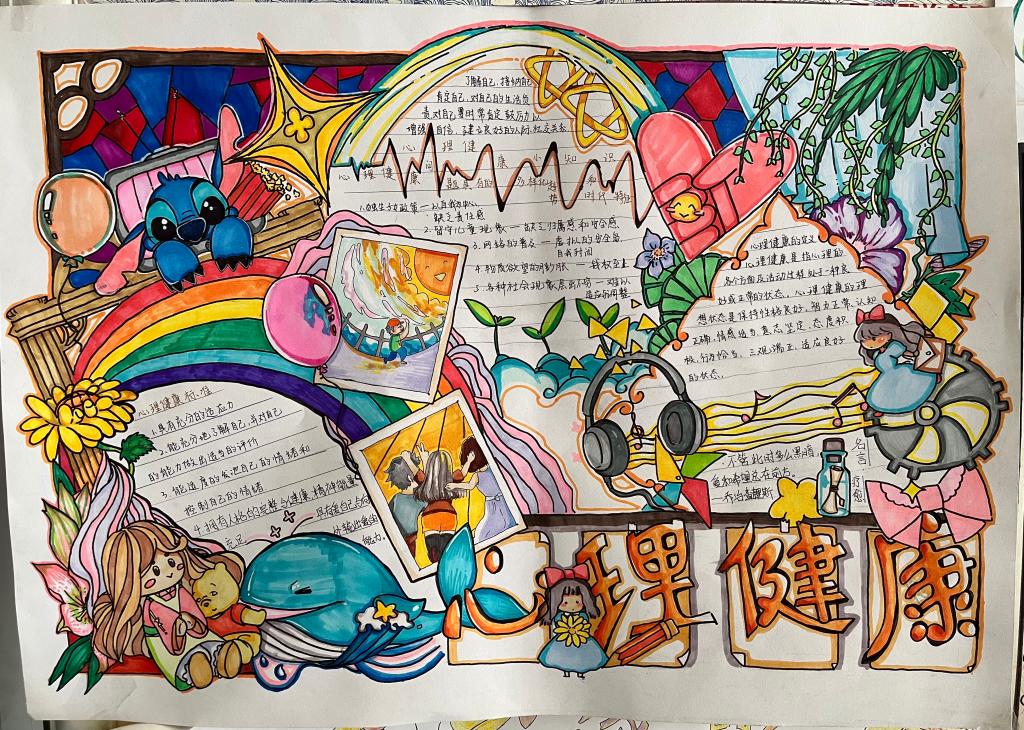 了解自己，接纳自己
肯定自己，对自己的生活负
责对自己要时常肯定较历力以
增强自信，建立良好的人际、社交关系
心理健康小知识
心理健康问题具有的多样化趋势和时代特征
1.独生子女政策——以自我为中心、
缺乏责任感
2.留守儿童现象——缺乏归属感和安全感
3.网络的普及——虚拟的安全岛、
自我封闭
4.物质欲望在膨胀——钱权至上
5.各种社会现象层出不穷——难以
适应和调整
心理健康的定义
心理健康是指心理的
各个方面及活动过程处于一种良
好或正常的状态。心理健康的理
想状态是保持性格良好、智力正常、认知
正确、情感适当、意志坚定、态度积
极、行为恰当、三观端正、适应良好
的状态。
心理健康标准
1.具有充分的适应力
2.能充分地了解自己，并对自己
的能力做出适当的评价
3.能适度的发泄自己的情绪和
控制自己的情绪
4.拥有人格的完整与健康，精神能量
充足
只有蛋白
能力。
名言
·不管此时多么黑暗，
爱和希望总在前方。
——乔治查理斯
疗愈
心理健康